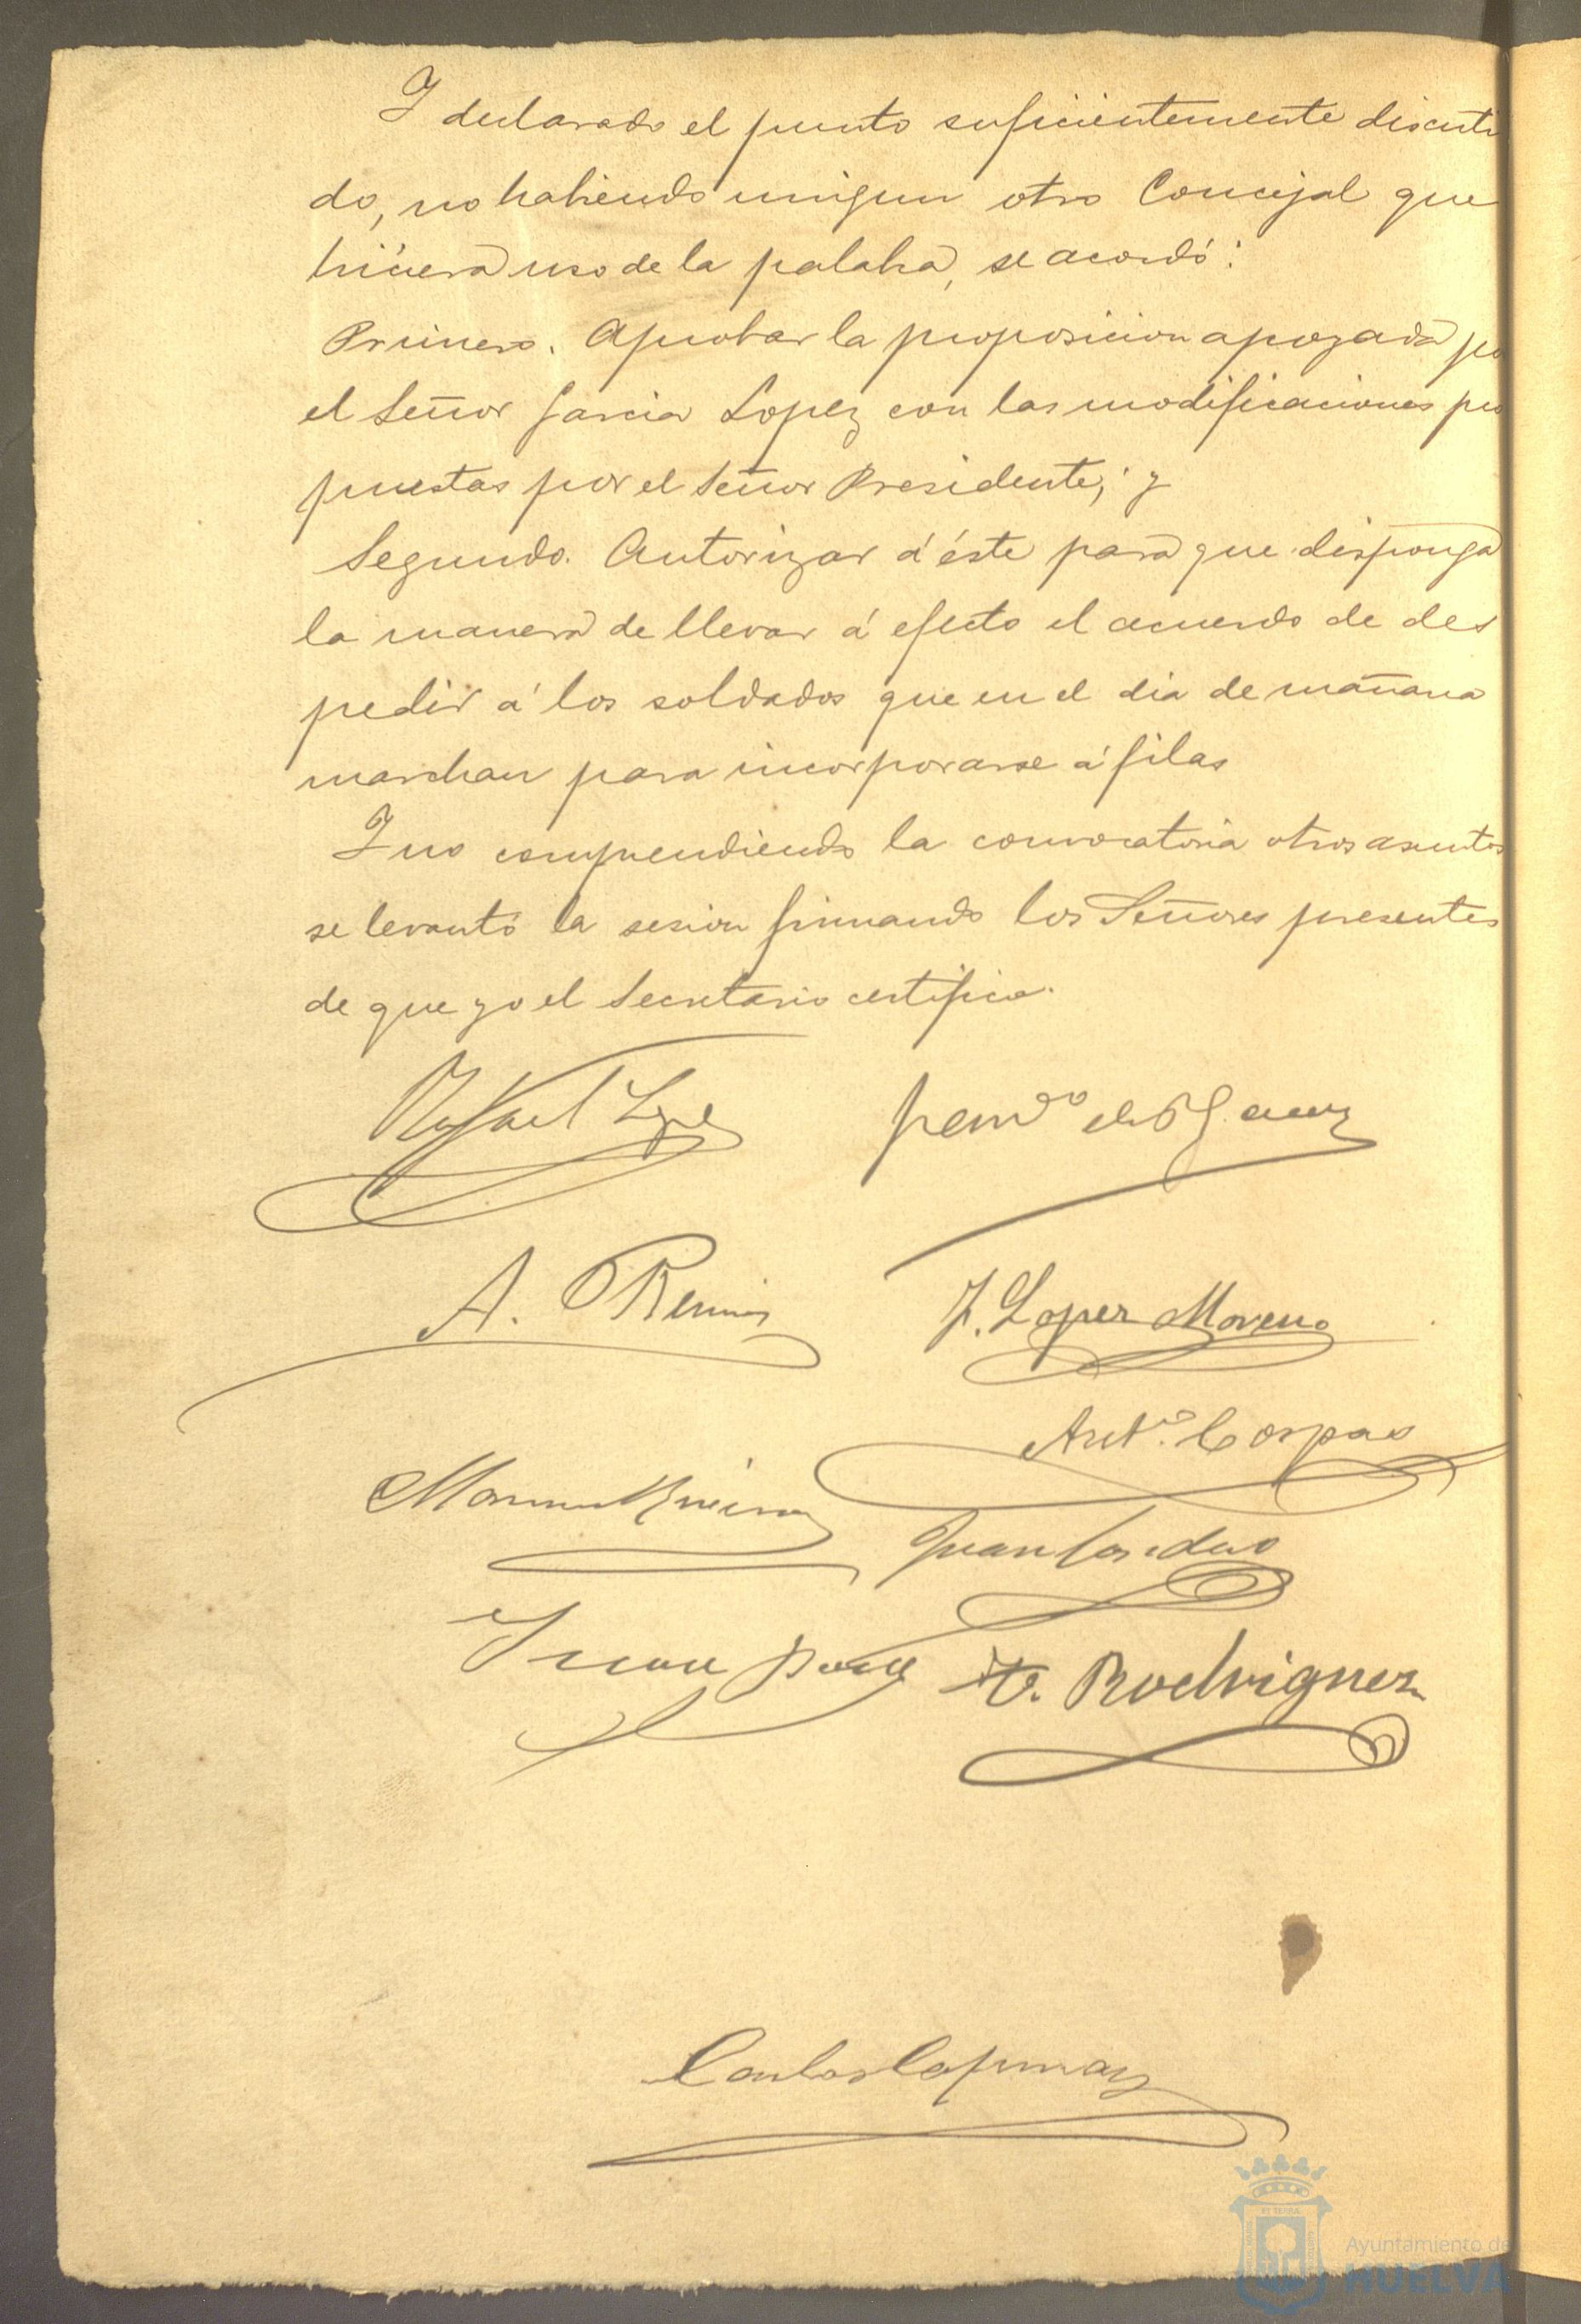 Y declarado el punto suficientemente discuti
do, no habiendo ningun otro Concejal que
hiciera uso de la palabra, se acordó:
Primero. Aprobar la proposicion apoyada po
el Señor Garcia Lopez con las modificaciones pro
puestas por el Señor Presidente; y
Segundo. Autorizar á éste para que disponga
la manera de llevar á efecto el acuerdo de des
pedir á los soldados que en el dia de mañana
marchan para incorporarse á filas
Y no comprendiendo la convocatoria otros asuntos
se levantó la sesion firmando los Señores presentes
de que yo el Secretario certifico.
Rafael
A.
J. Lopez Moreno
Antº. Corpas
Juan
V. Rodriguez
Carlos
Ayuntamiento de
HUELVA